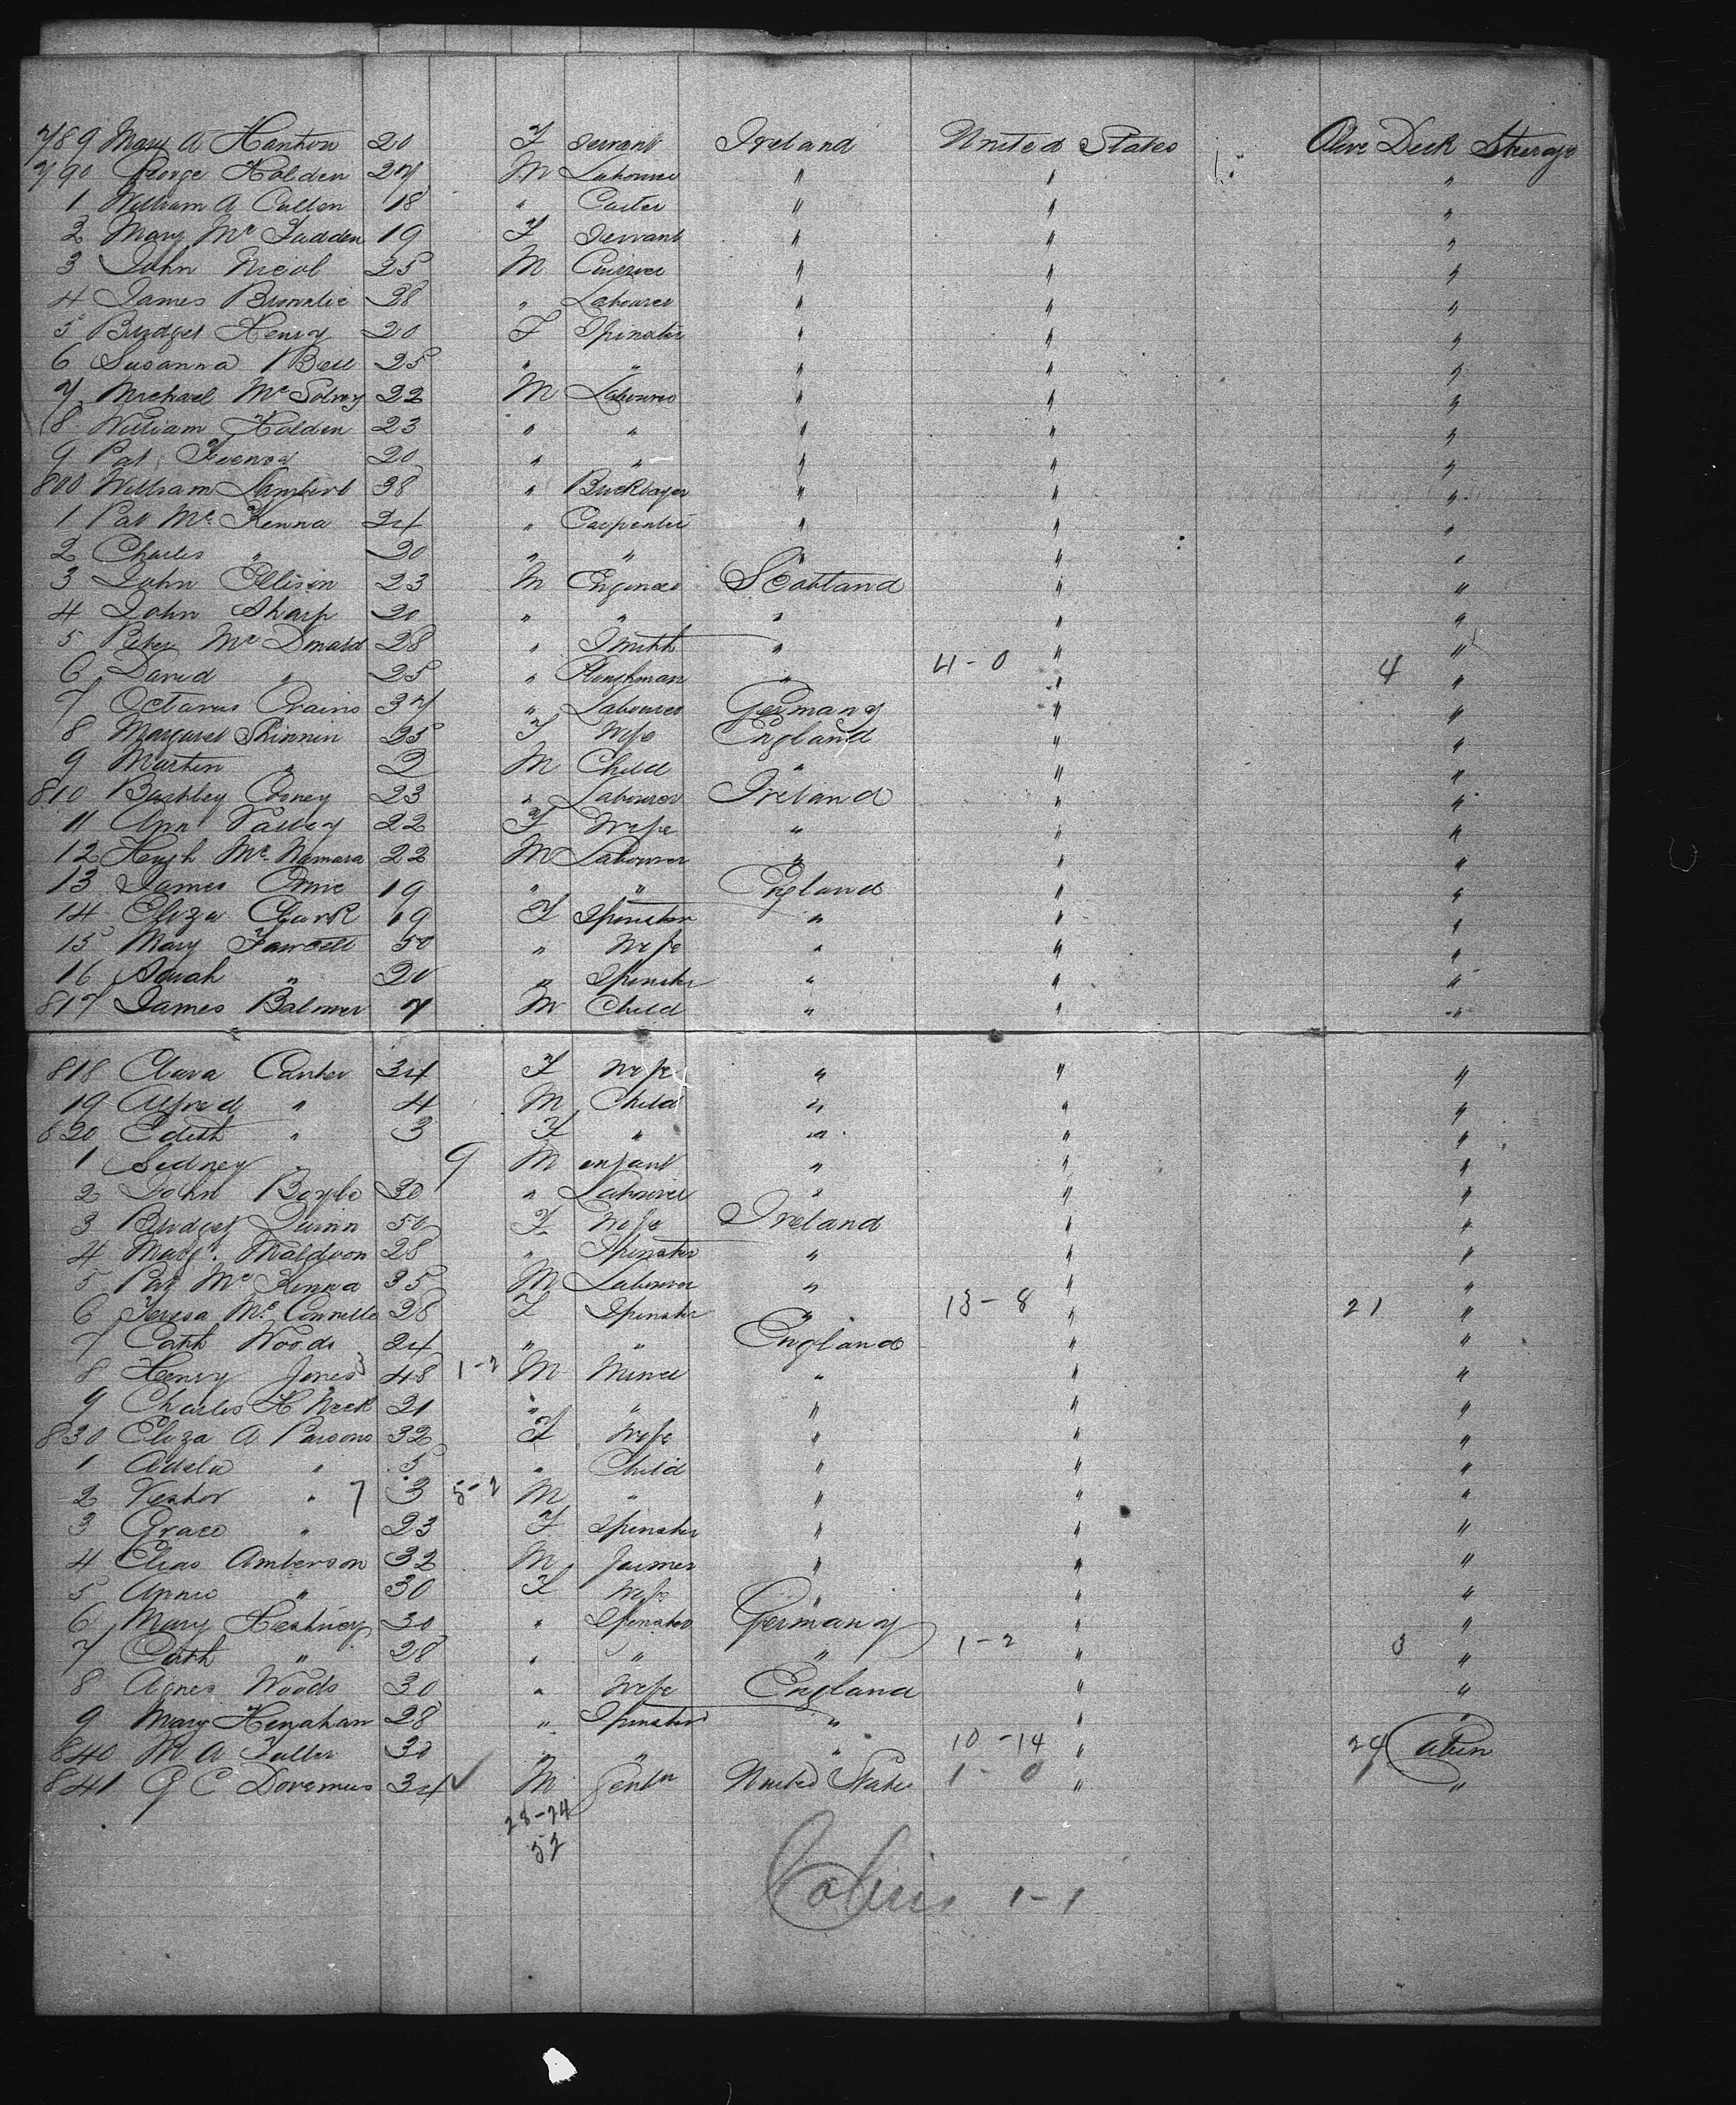 789 Mary A Hanton 20 F Servant Ireland United States Olive Deck Steerage
790 George Holden 27 M Labourer " " "
1 William A Cullen 18 " Carter " " "
2 Mary Mc Fadden 19 F Servant " " "
3 John Nicol 25 M " " "
4 James Brownlie 28 " Labourer " " "
5 Bridget Henry 20 F Spinster " " "
6 Susanna Bell 25 " " " " "
7 Michael Mc 22 M Labourer " " "
8 William Holden 23 " " " " "
9 Pat 20 " " " " "
800 William Lambert 38 " Bricklayer " " "
1 Pat Mc Kenna 24 " Carpenter " " "
2 Charles " 20 " " " " "
3 John Ellison 23 M Engineer Scotland " "
4 John Sharp 20 " " " " "
5 Peter Mc Donald 28 " Smith " " "
6 David " 25 " Ploughman " 4-0 " 4 "
7 Octavus 37 " Labourer Germany " "
8 Margaret Shinnin 25 F Wife England " "
9 Martin " 2 M Child " " "
810 Bashley Cooney 23 " Labourer Ireland " "
11 Ann Valley 22 F Wife " " "
12 Hugh Mc Namara 22 M Labourer " " "
13 James 19 " " England " "
14 Eliza Clark 19 F Spinster " " "
15 Mary Fawcett 50 " Wife " " "
16 Sarah " 20 " Spinster " " "
817 James Balmer 7 M Child " " "
818 Clara Canter 34 F Wife " " "
19 Alfred " 4 M Child " " "
820 Edith " 3 F " " " "
1 Sidney " 9 M infant " " "
2 John 30 " Labourer " " "
3 Bridget Quinn 50 F Wife Ireland " "
4 Margt. Maldoon 28 " Spinster " " "
5 Pat Mc Kenna 35 M Labourer " " "
6 Teresa Mc 28 F Spinster " 13-8 " 21 "
7 Cath Woods 24 " " England " "
8 Henry Jones 48 1-2 M Miner " " "
9 Charles H Week 21 " " " " "
830 Eliza A Parsons 32 F Wife " " "
1 Adela " 5 " Child " " "
2 " 7 3 5-2 M " " " "
3 Grace " 23 F Spinster " " "
4 Elias Amberson 32 M Farmer " " "
5 Annie " 30 F Wife " " "
6 Mary 30 " Spinster Germany " "
7 Cath " 28 " " " 1-2 " 3 "
8 Agnes Woods 30 " Wife England " "
9 Mary Henahan 28 " Spinster " " "
840 M A Fuller 30 " " " 10-14 " 24 Cabin
841 G C Doremus 34 ✓ M Gentn United States 1-0 " 1 "
28-24
52
Cabin 1-1